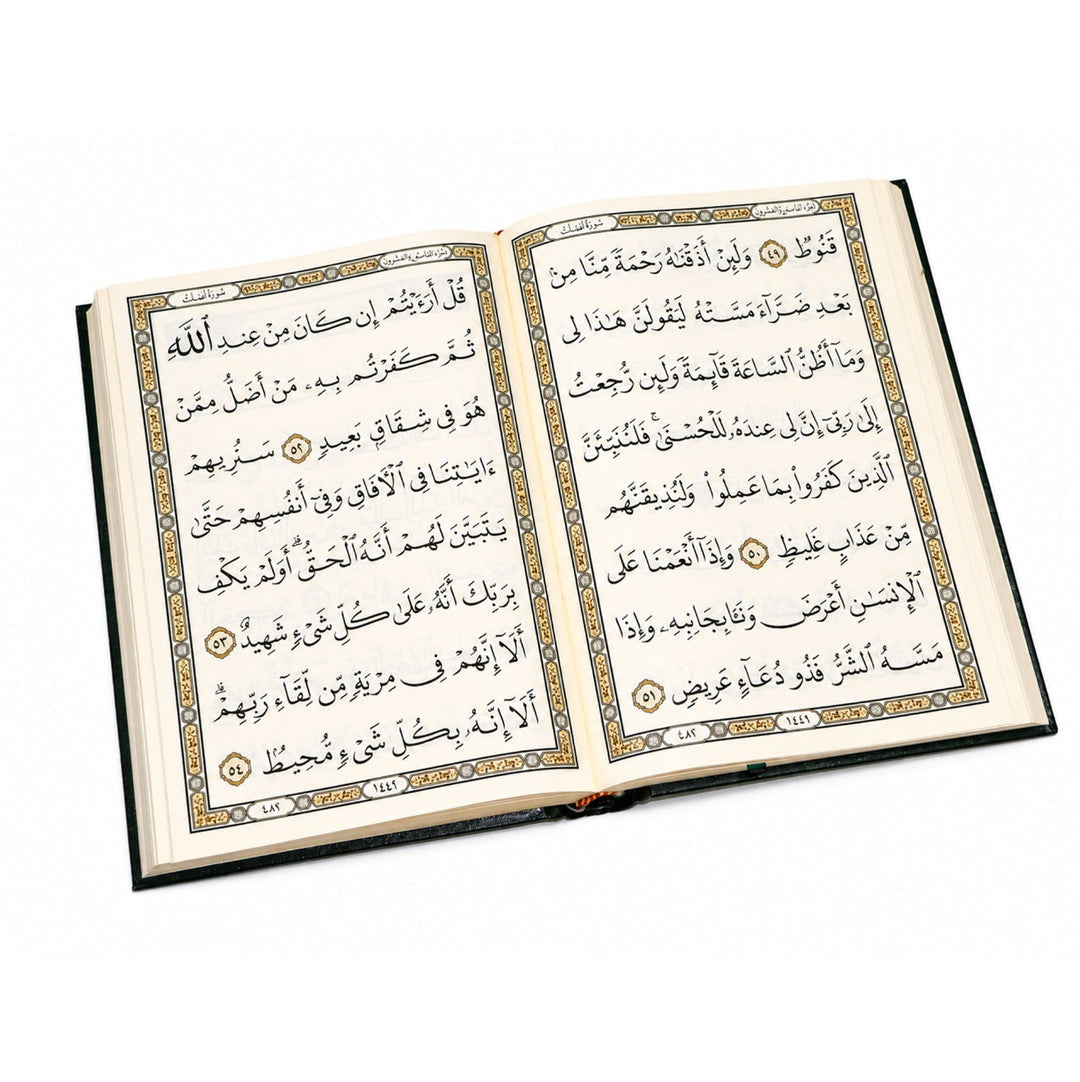 سُورَةُ
قَنُوطٌ ٤٩ وَلَئِنْ أَذَقْنَٰهُ رَحْمَةً مِّنَّا مِنۢ
بَعْدِ ضَرَّآءَ مَسَّتْهُ لَيَقُولَنَّ هَٰذَا لِى
وَمَآ أَظُنُّ ٱلسَّاعَةَ قَآئِمَةً وَلَئِن رُّجِعْتُ
إِلَىٰ رَبِّىٓ إِنَّ لِى عِندَهُۥ لَلْحُسْنَىٰ ۚ فَلَنُنَبِّئَنَّ
ٱلَّذِينَ كَفَرُوا۟ بِمَا عَمِلُوا۟ وَلَنُذِيقَنَّهُم
مِّنْ عَذَابٍ غَلِيظٍ ٥٠ وَإِذَآ أَنْعَمْنَا عَلَى
ٱلْإِنسَٰنِ أَعْرَضَ وَنَـَٔا بِجَانِبِهِۦ وَإِذَا
مَسَّهُ ٱلشَّرُّ فَذُو دُعَآءٍ عَرِيضٍ ٥١
١٤٤٩ ٤٨٢
سُورَةُ
قُلْ أَرَءَيْتُمْ إِن كَانَ مِنْ عِندِ ٱللَّهِ
ثُمَّ كَفَرْتُم بِهِۦ مَنْ أَضَلُّ مِمَّنْ
هُوَ فِى شِقَاقٍۭ بَعِيدٍ ٥٢ سَنُرِيهِمْ
ءَايَٰتِنَا فِى ٱلْآفَاقِ وَفِىٓ أَنفُسِهِمْ حَتَّىٰ
يَتَبَيَّنَ لَهُمْ أَنَّهُ ٱلْحَقُّ ۗ أَوَلَمْ يَكْفِ
بِرَبِّكَ أَنَّهُۥ عَلَىٰ كُلِّ شَىْءٍ شَهِيدٌ ٥٣
أَلَآ إِنَّهُمْ فِى مِرْيَةٍ مِّن لِّقَآءِ رَبِّهِمْ ۗ
أَلَآ إِنَّهُۥ بِكُلِّ شَىْءٍ مُّحِيطٌۢ ٥٤
١٤٤٩ ٤٨٢